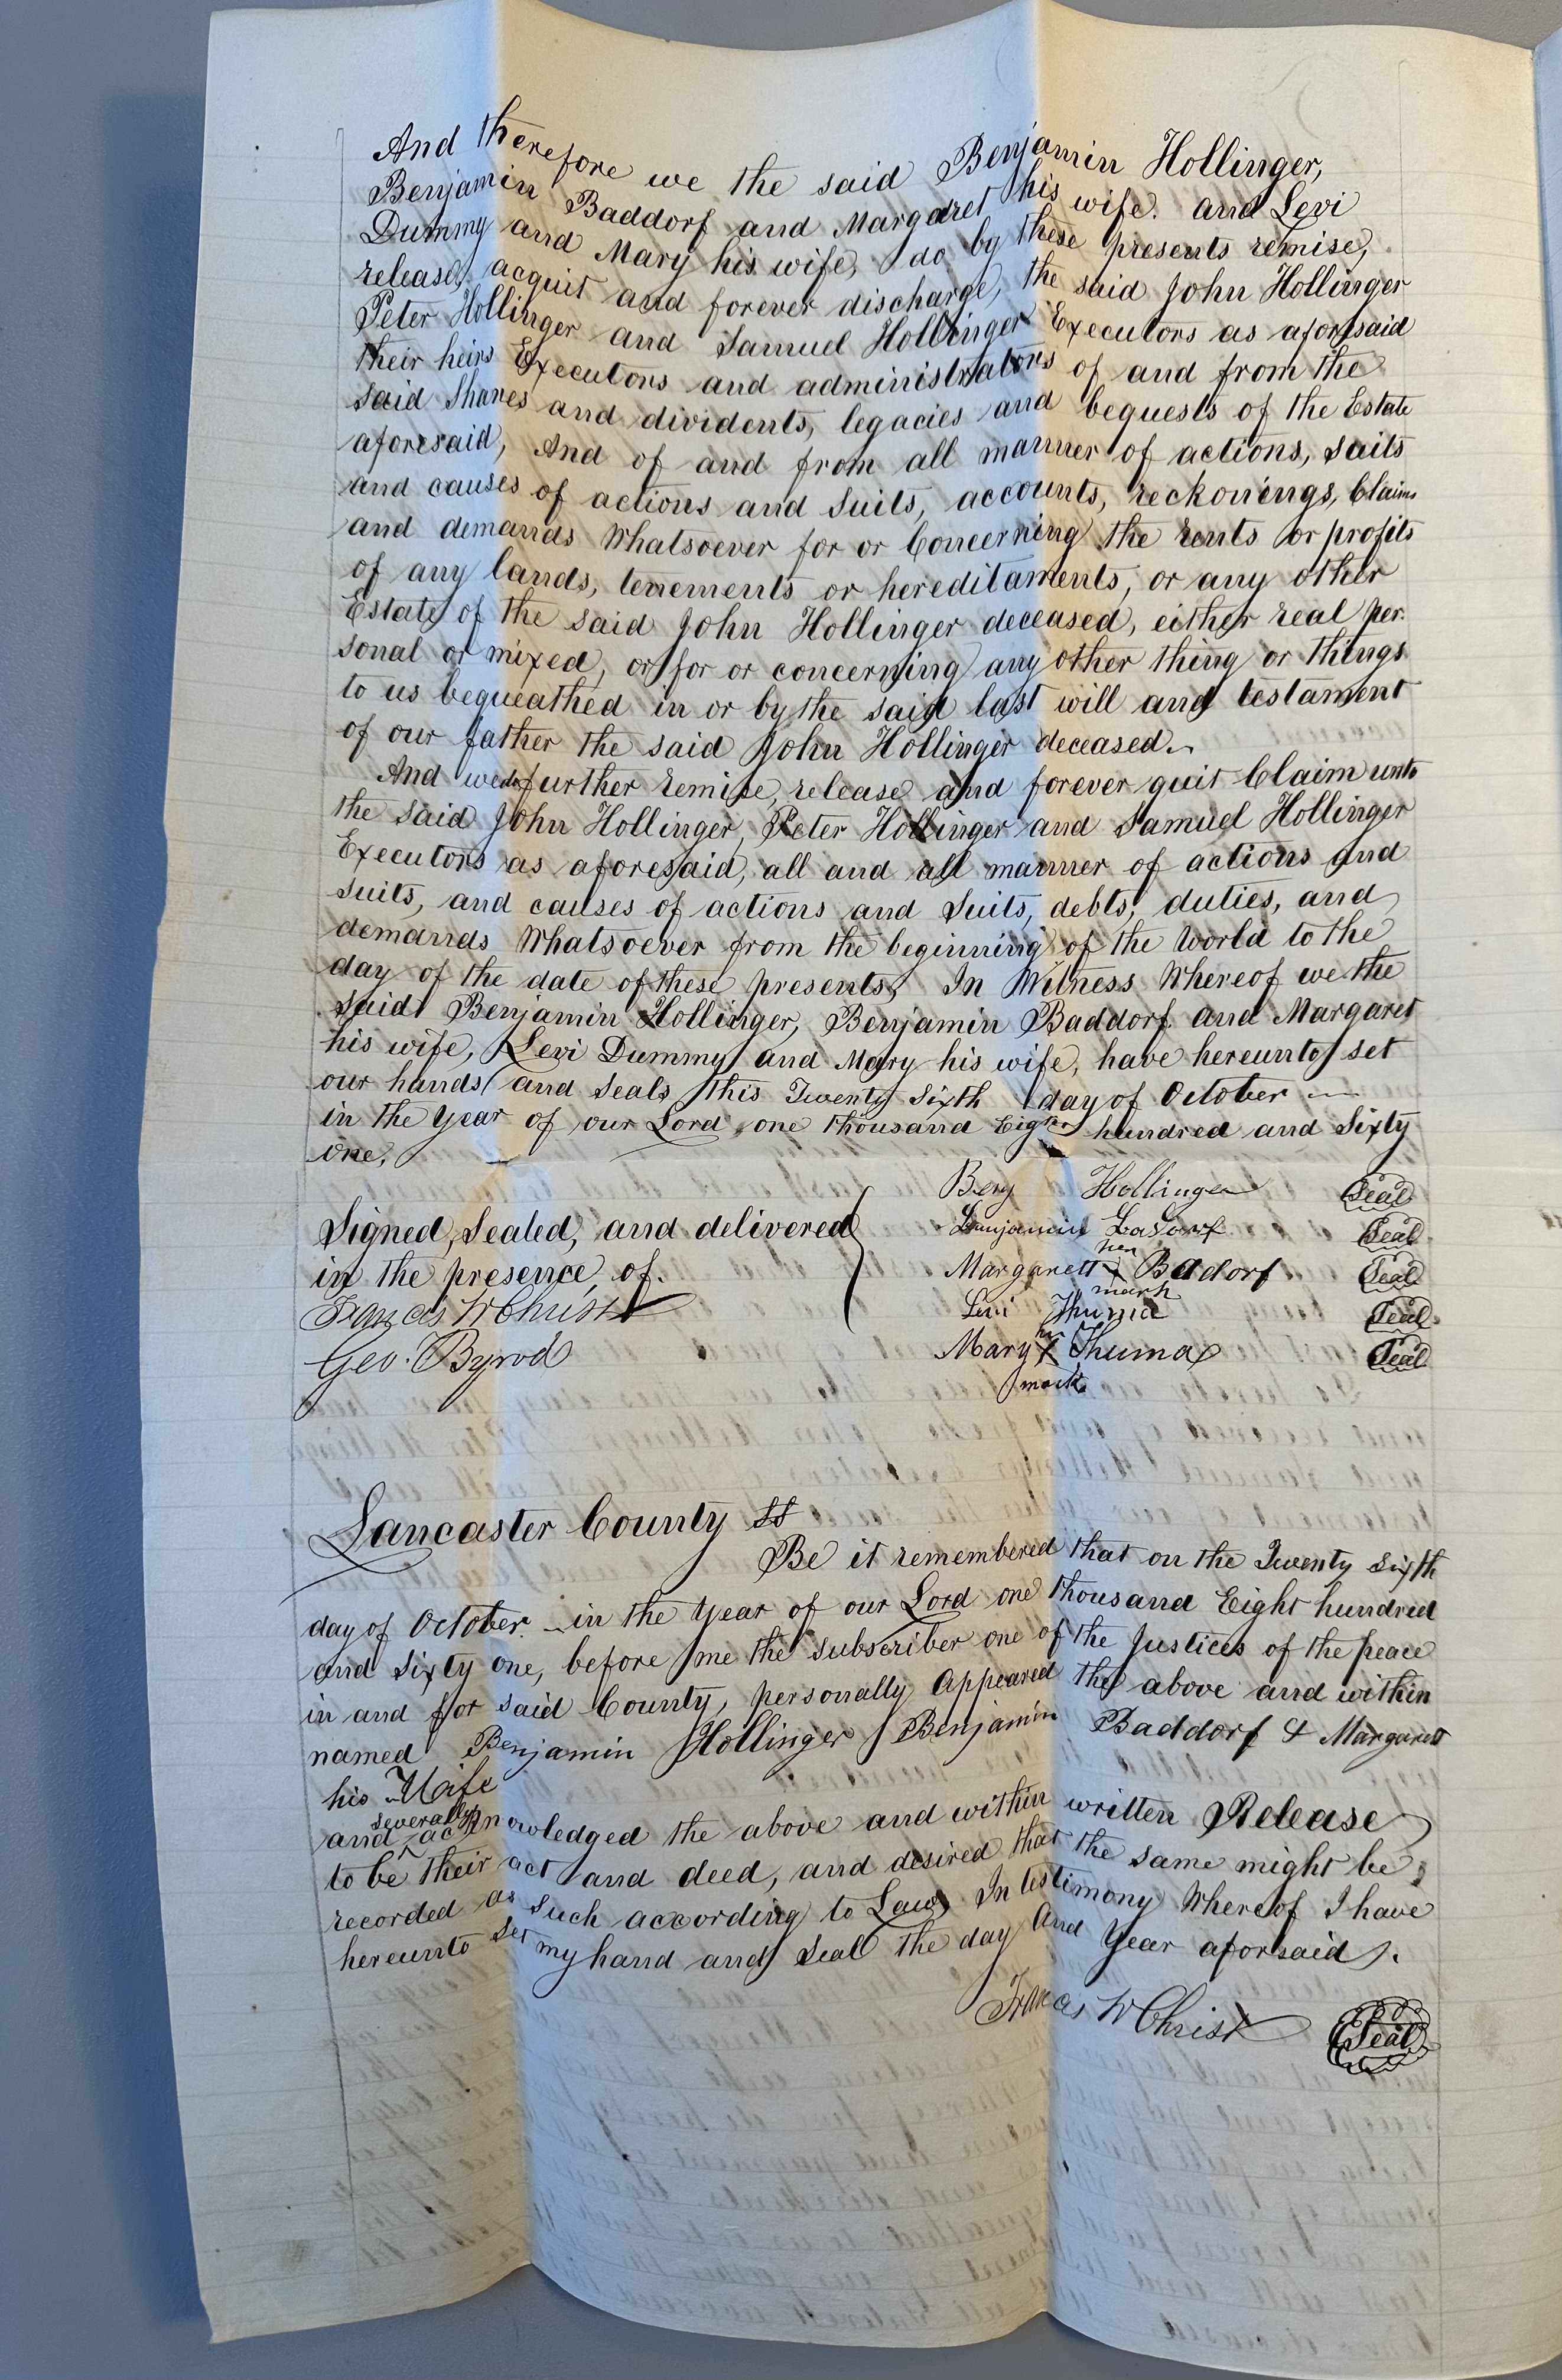 And therefore we the said Benjamin Hollinger,
Benjamin Baddorf and Margaret his wife. and Levi
Dummy and Mary his wife, do by these presents remise,
release, acquit and forever discharge, the said John Hollinger
Peter Hollinger and Samuel Hollinger Executors as aforesaid
their heirs Executors and administrators of and from the
said Shares and dividents, legacies and bequests of the Estate
aforesaid, And of and from all manner of actions, suits
and causes of actions and suits, accounts, reckonings, Claims
and demands Whatsoever for or Concerning the rents or profits
of any lands, tenements or hereditaments, or any other
Estate of the said John Hollinger deceased, either real per-
sonal or mixed, or for or concerning any other thing or things
to us bequeathed in or by the said last will and testament
of our father the said John Hollinger deceased.
And we do further remise, release and forever quit Claim unto
the said John Hollinger, Peter Hollinger and Samuel Hollinger
Executors as aforesaid, all and all manner of actions and
suits, and causes of actions and Suits, debts, duties, and
demands Whatsoever from the beginning of the World to the
day of the date of these presents, In Witness Whereof we the
said Benjamin Hollinger, Benjamin Baddorf and Margaret
his wife, Levi Dummy and Mary his wife, have hereunto set
our hands and seals this Twenty Sixth day of October
in the Year of our Lord one thousand Eight hundred and Sixty
one.
Benj Hollinger Seal
Signed, Sealed, and delivered
in the presence of.
Benjamin Seal
her
Margarett X Badorf Seal
mark
Francis W Christ
Levi Thuma Seal
Geo. Byrod
her
Mary X Thuma Seal
mark
Lancaster County SS
Be it remembered that on the Twenty Sixth
day of October in the Year of our Lord one thousand Eight hundred
and Sixty one, before me the subscriber one of the Justices of the peace
in and for said County, personally Appeared the above and within
named Benjamin Hollinger Benjamin Baddorf & Margarett
his Wife
severally
and acknowledged the above and within written Release
to be their act and deed, and desired that the same might be
recorded as such according to Law. In testimony Whereof I have
hereunto set my hand and Seal the day And Year aforsaid.
Francis W Christ Seal